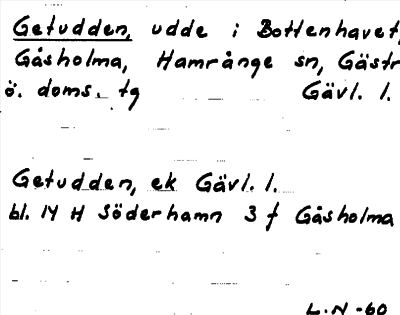 Getudden, udde i Bottenhavet,
Gåsholma, Hamrånge sn, Gästr
ö. doms. tg Gävl. l.
Getudden, ek Gävl. l.
bl. 14 H Söderhamn 3 f Gåsholma
L.N -60